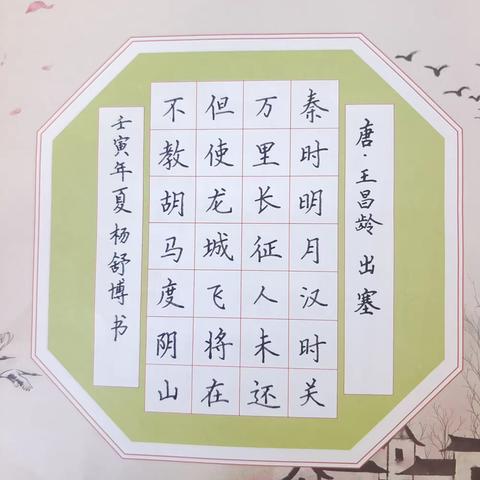 唐·王昌龄 出塞
秦时明月汉时关
万里长征人未还
但使龙城飞将在
不教胡马度阴山
壬寅年夏杨舒博书